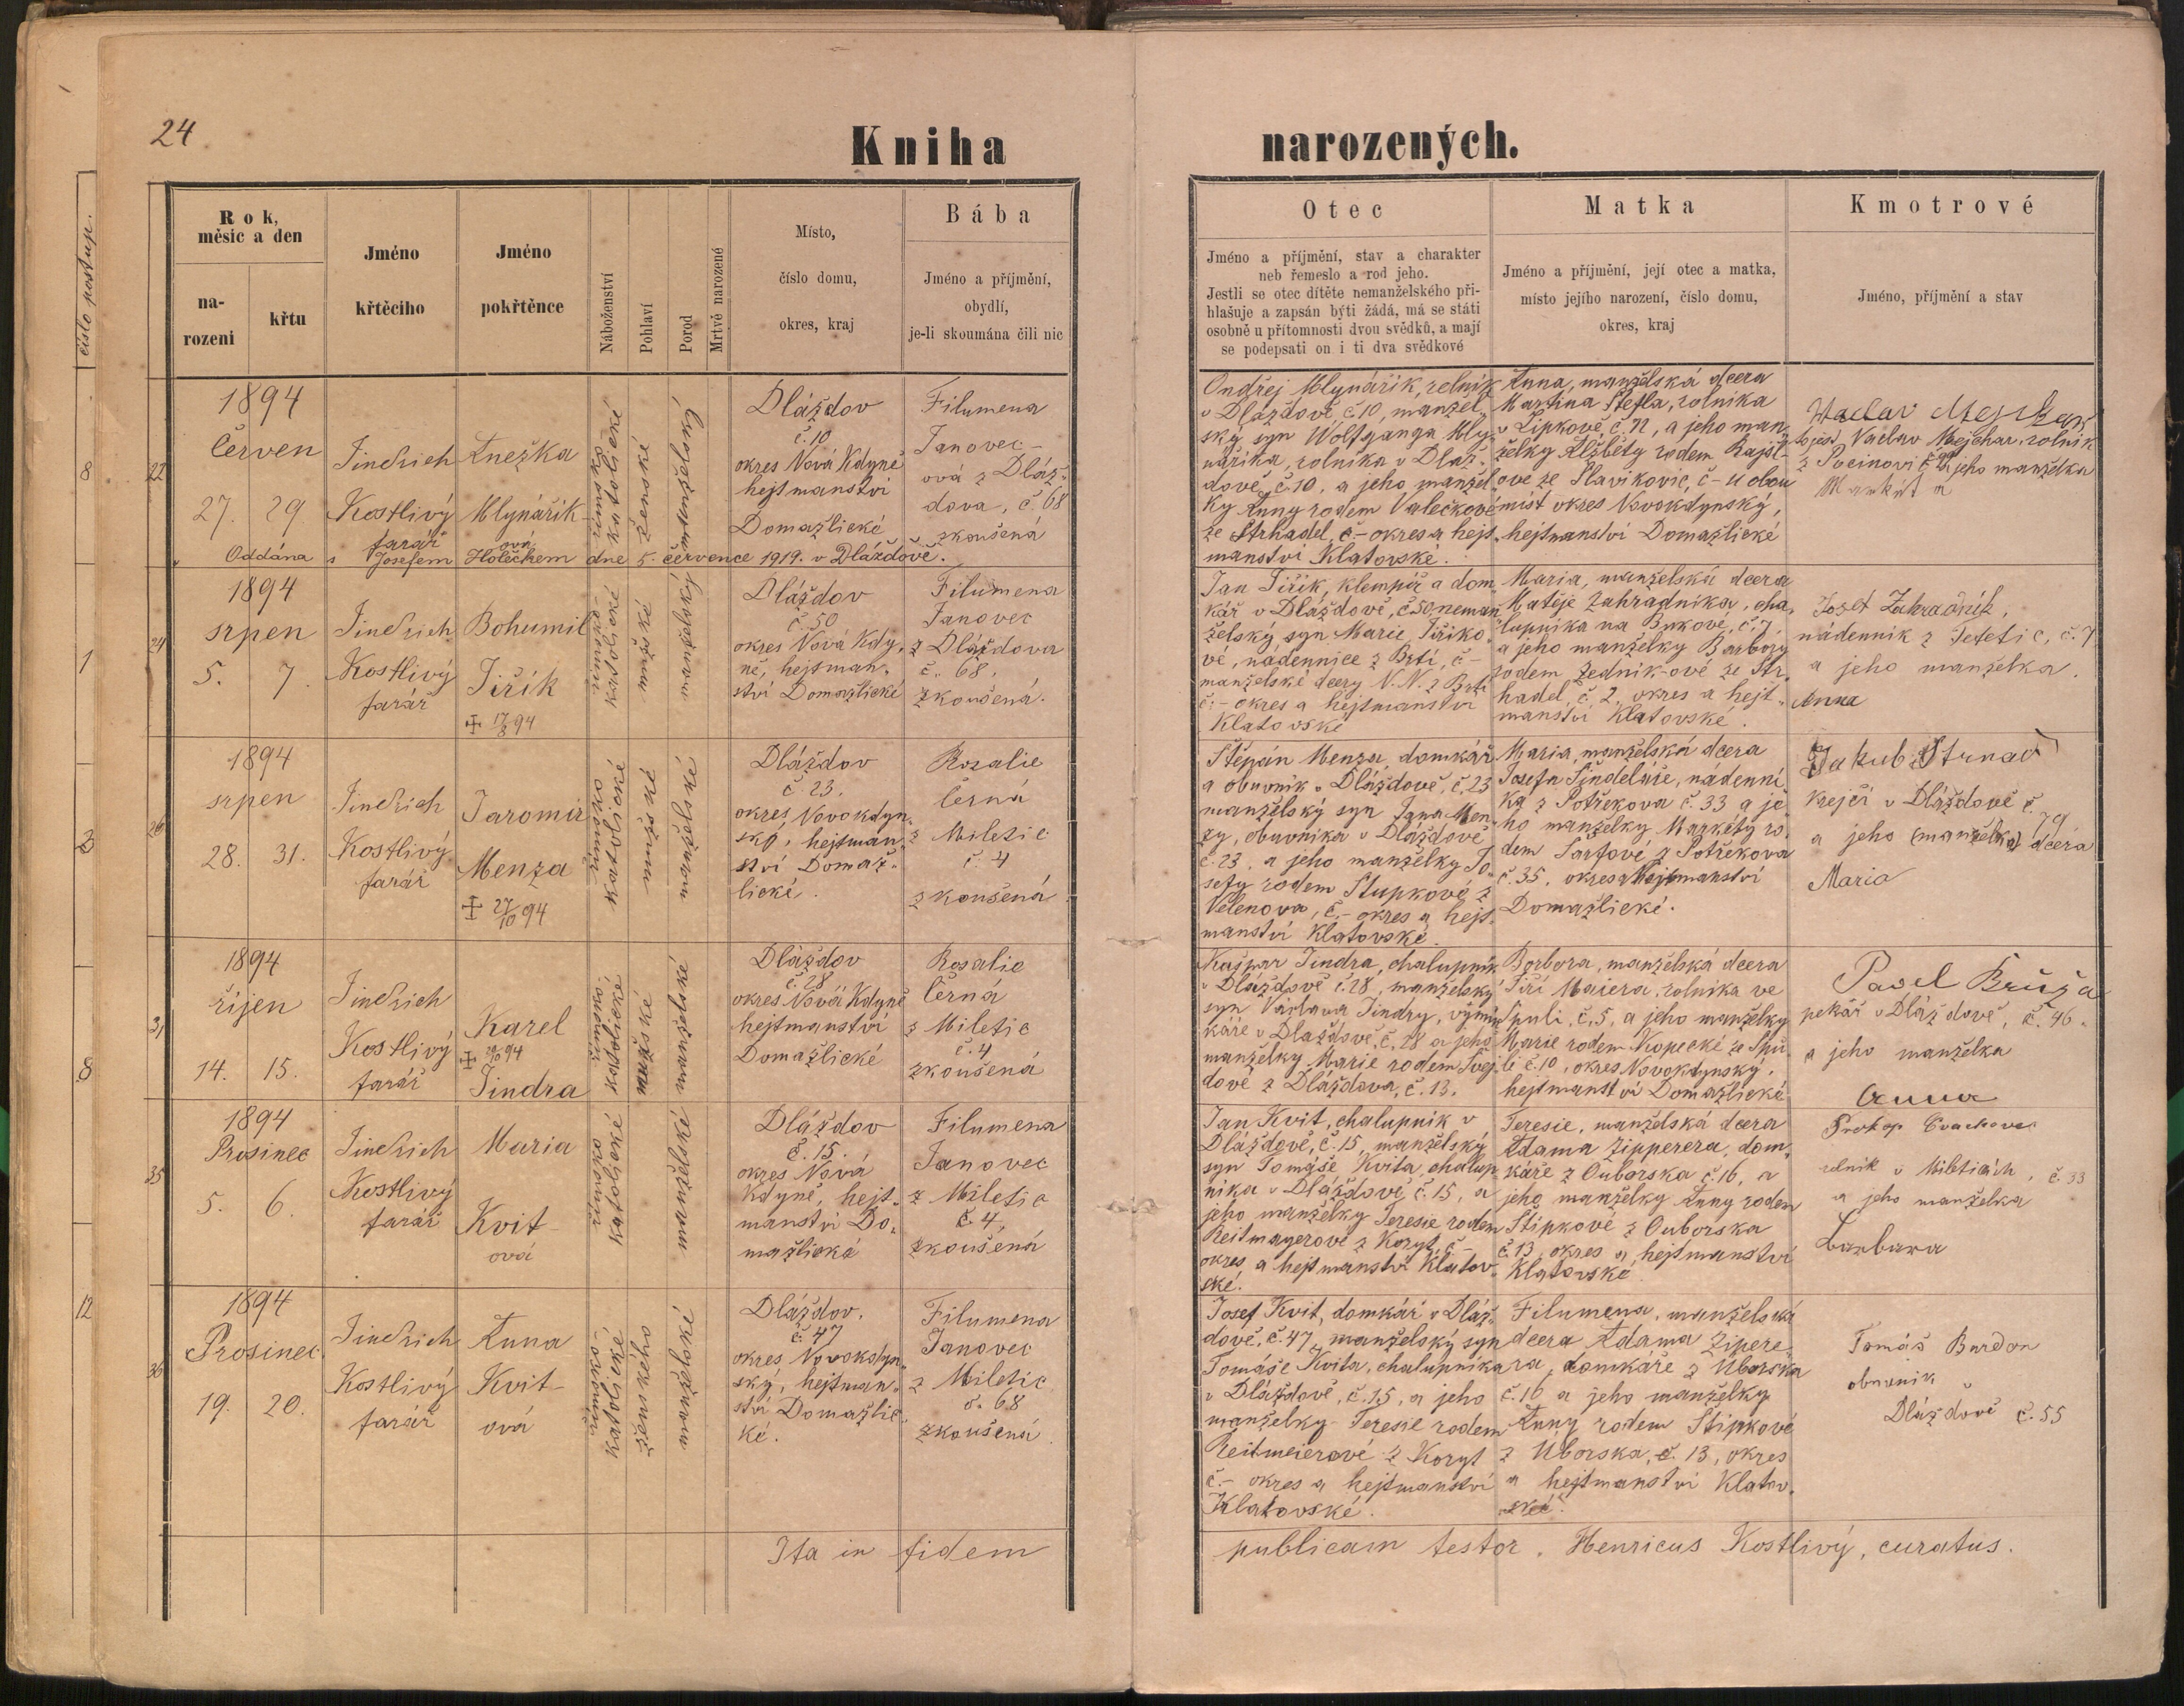 24
Kniha narozených.
číslo postup.
Rok,
měsíc a den
na-
rozeni
křtu
Jméno
křtěcího
Jméno
pokřtěnce
Náboženství
Pohlaví
Porod
Mrtvě narozené
Místo,
číslo domu,
okres, kraj
Bába
Jméno a příjmění,
obydlí,
je-li skoumána čili nic
Otec
Jméno a příjmění, stav a charakter
neb řemeslo a rod jeho.
Jestli se otec dítěte nemanželského při-
hlašuje a zapsán býti žádá, má se státi
osobně u přítomnosti dvou svědků, a mají
se podepsati on i ti dva svědkové
Matka
Jméno a příjmění, její otec a matka,
místo jejího narození, číslo domu,
okres, kraj
Kmotrové
Jméno, příjmění a stav
8
22
1894
Červen
27. 29.
Jindřich
Kostlivý
farář
Anežka
Mlynářík-
ová
římsko-
katolické
ženské
manželský
Dláždov
č. 10
okres Nová Kdyně
hejtmanství
Domažlické
Filumena
Janovec-
ová z Dláž-
dova, č. 68
zkoušená
Ondřej Mlynářík, rolník
v Dláždově č 10, manžel-
ský syn Wolfganga Mly-
náříka, rolníka v Dláž-
dově č. 10, a jeho manžel-
ky Anny rodem Valečkové
ze Strhadel, č.– okres a hejt-
manství Klatovské.
Anna, manželská dcera
Martina Štefla, rolníka
v Lipkově, č. 12, a jeho man-
želky Alžběty rodem Rajšl-
ové ze Slavikovic, č– u obou
míst okres Novokdynský,
hejtmanství Domažlické
to jest Václav Mejchar, rolník
z Pocinovi č. a jeho manželka
Markéta
Oddána s Josefem Holečkem dne 5. července 1919. v Dláždově.
1
24
1894
srpen
5. 7.
Jindřich
Kostlivý
farář
Bohumil
Jiřík
✠ 17/8 94
římsko-
katolické
mužské
manželský
Dláždov
č. 50
okres Nová Kdy-
ně, hejtman-
ství Domažlické
Filumena
Janovec
z Dláždova
č. 68,
zkoušená.
Jan Jiřík, klempíř a dom-
kář v Dláždově, č 50, neman-
želský syn Marie Jiříko-
vé, nádennice z Brtí, č –
manželské dcery N. N. z Brtí
č.– okres a hejtmanství
Klatovské
Maria, manželská dcera
Matěje Zahradníka, cha-
lupníka na Bukové, č. 7,
a jeho manželky Barbory
rodem Zedník-ové ze Str-
hadel, č. 2, okres a hejt-
manství Klatovské.
Josef Zahradník,
nádenník z Tetětic, č. 7
a jeho manželka
Anna
3
26
1894
srpen
28. 31.
Jindřich
Kostlivý
farář
Jaromír
Menza
✠ 27/10 94
římsko
katolické
mužské
manželské
Dláždov
č. 23.
okres Novokdyn-
ský, hejtman-
ství Domaž-
lické.
Rozalie
Černá
z Miletic
č. 4
zkoušená
Štěpán Menza, domkář
a obuvník v Dláždově, č. 23
manželský syn Jana Men-
zy, obuvníka v Dláždově
č. 23, a jeho manželky Jo-
sefy rodem Stupkové z
Velenova, č.– okres a hejt-
manství Klatovské.
Maria, manželská dcera
Josefa Šindeláře, nádenní-
ka z Potřekova č. 33 a je-
ho manželky Markéty ro-
dem Sarfové z Potřekova
č. 35, okres a hejtmanství
Domažlické.
Jakub Strnad
krejčí v Dláždově č. 79
a jeho (manželka) dcera
Maria
8
31
1894
říjen
14. 15.
Jindřich
Kostlivý
farář
Karel
Jindra
římsko
katolické
mužské
manželské
Dláždov
č. 28
okres Nová Kdyně
hejtmanství
Domažlické
Rosalie
Černá
z Miletic
č. 4
zkoušená
Kašpar Jindra, chalupník
v Dláždově č. 28, manželský
syn Václava Jindry, výmin-
káře v Dláždově, č. 28 a jeho
manželky Marie rodem Švej-
dové z Dláždova, č. 13.
Barbora, manželská dcera
Jiří Maiera, rolníka ve
Spuli, č. 5, a jeho manželky
Marie rodem Kopecké ze Spu-
li č. 10, okres Novokdynský,
hejtmanství Domažlické
Pavel Bruža
pekář v Dláždově, č. 46.
a jeho manželka
Anna
12
35
1894
Prosinec
5. 6.
Jindřich
Kostlivý
farář
Maria
Kvit-
ová
římsko
katolické
manželské
Dláždov
č. 15.
okres Nová
Kdyně, hejt-
manství Do-
mažlické
Filumena
Janovec
z Miletic
č. 4,
zkoušená
Jan Kvit, chalupník v
Dláždově, č. 15, manželský
syn Tomáše Kvita, chalup-
níka v Dláždově č. 15, a
jeho manželky Teresie rodem
Reitmayerové z Koryt, č –
okres a hejtmanství Klatov-
ské.
Teresie, manželská dcera
Adama Zipperera, dom-
káře z Ouborska č. 16, a
jeho manželky Anny rodem
Štipkové z Ouborska
č. 13, okres a hejtmanství
Klatovské
Prokop
rolník v Mileticích, č. 33
a jeho manželka
Barbara
36
1894
Prosinec
19. 20.
Jindřich
Kostlivý
farář
Anna
Kvit-
ová
římsko-
katolické
ženského
manželské
Dláždov.
č. 47
okres Novokdyn-
ský, hejtman-
ství Domažlic-
ké.
Filumena
Janovec
z Miletic
č. 68
zkoušená
Josef Kvit, domkář v Dláž-
dově, č. 47, manželský syn
Tomáše Kvita, chalupníka
v Dláždově, č. 15, a jeho
manželky Teresie rodem
Reitmeierové z Koryt
č.– okres a hejtmanství
Klatovské.
Filumena, manželská
dcera Adama Zipere-
ra, domkáře z Úborska
č. 16 a jeho manželky
Anny rodem Štipkové
z Úborska, č. 13, okres
a hejtmanství Klatov-
ské.
Tomáš Burdon
obuvník
Dláždově č. 55
Ita in fidem publicam testor. Henricus Kostlivý, curatus.